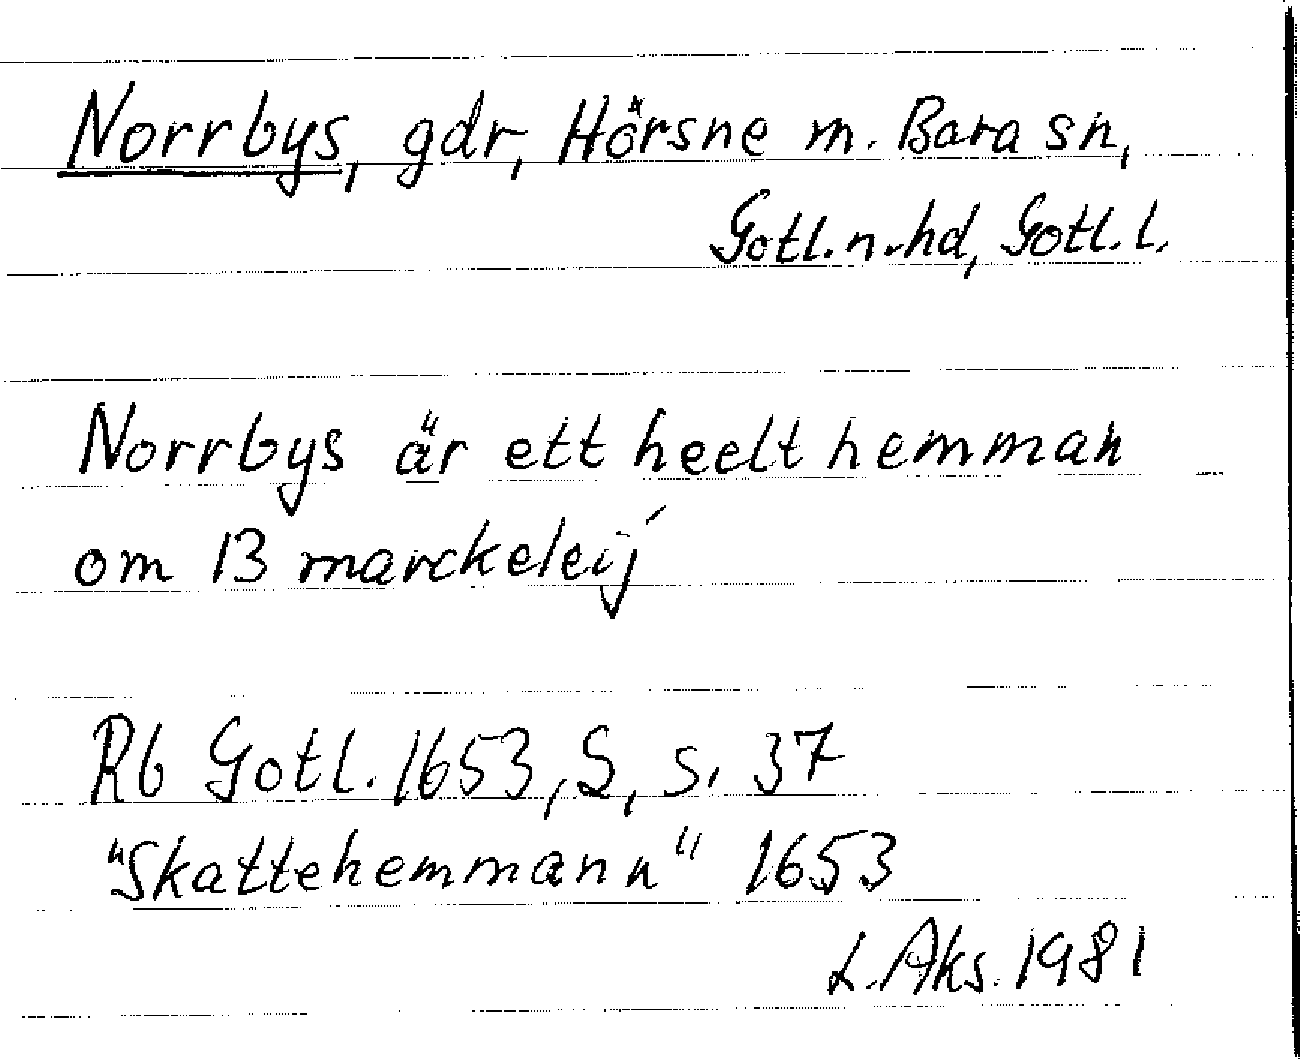 Norrbys, gdr, Hörsne m. Bara sn,
Gotl. n. hd, Gotl. l.
Norrbys är ett heelt hemman
om 13 marckeleij
Rb Gotl. 1653, S, s. 37
"Skattehemmann" 1653
L. Aks. 1981